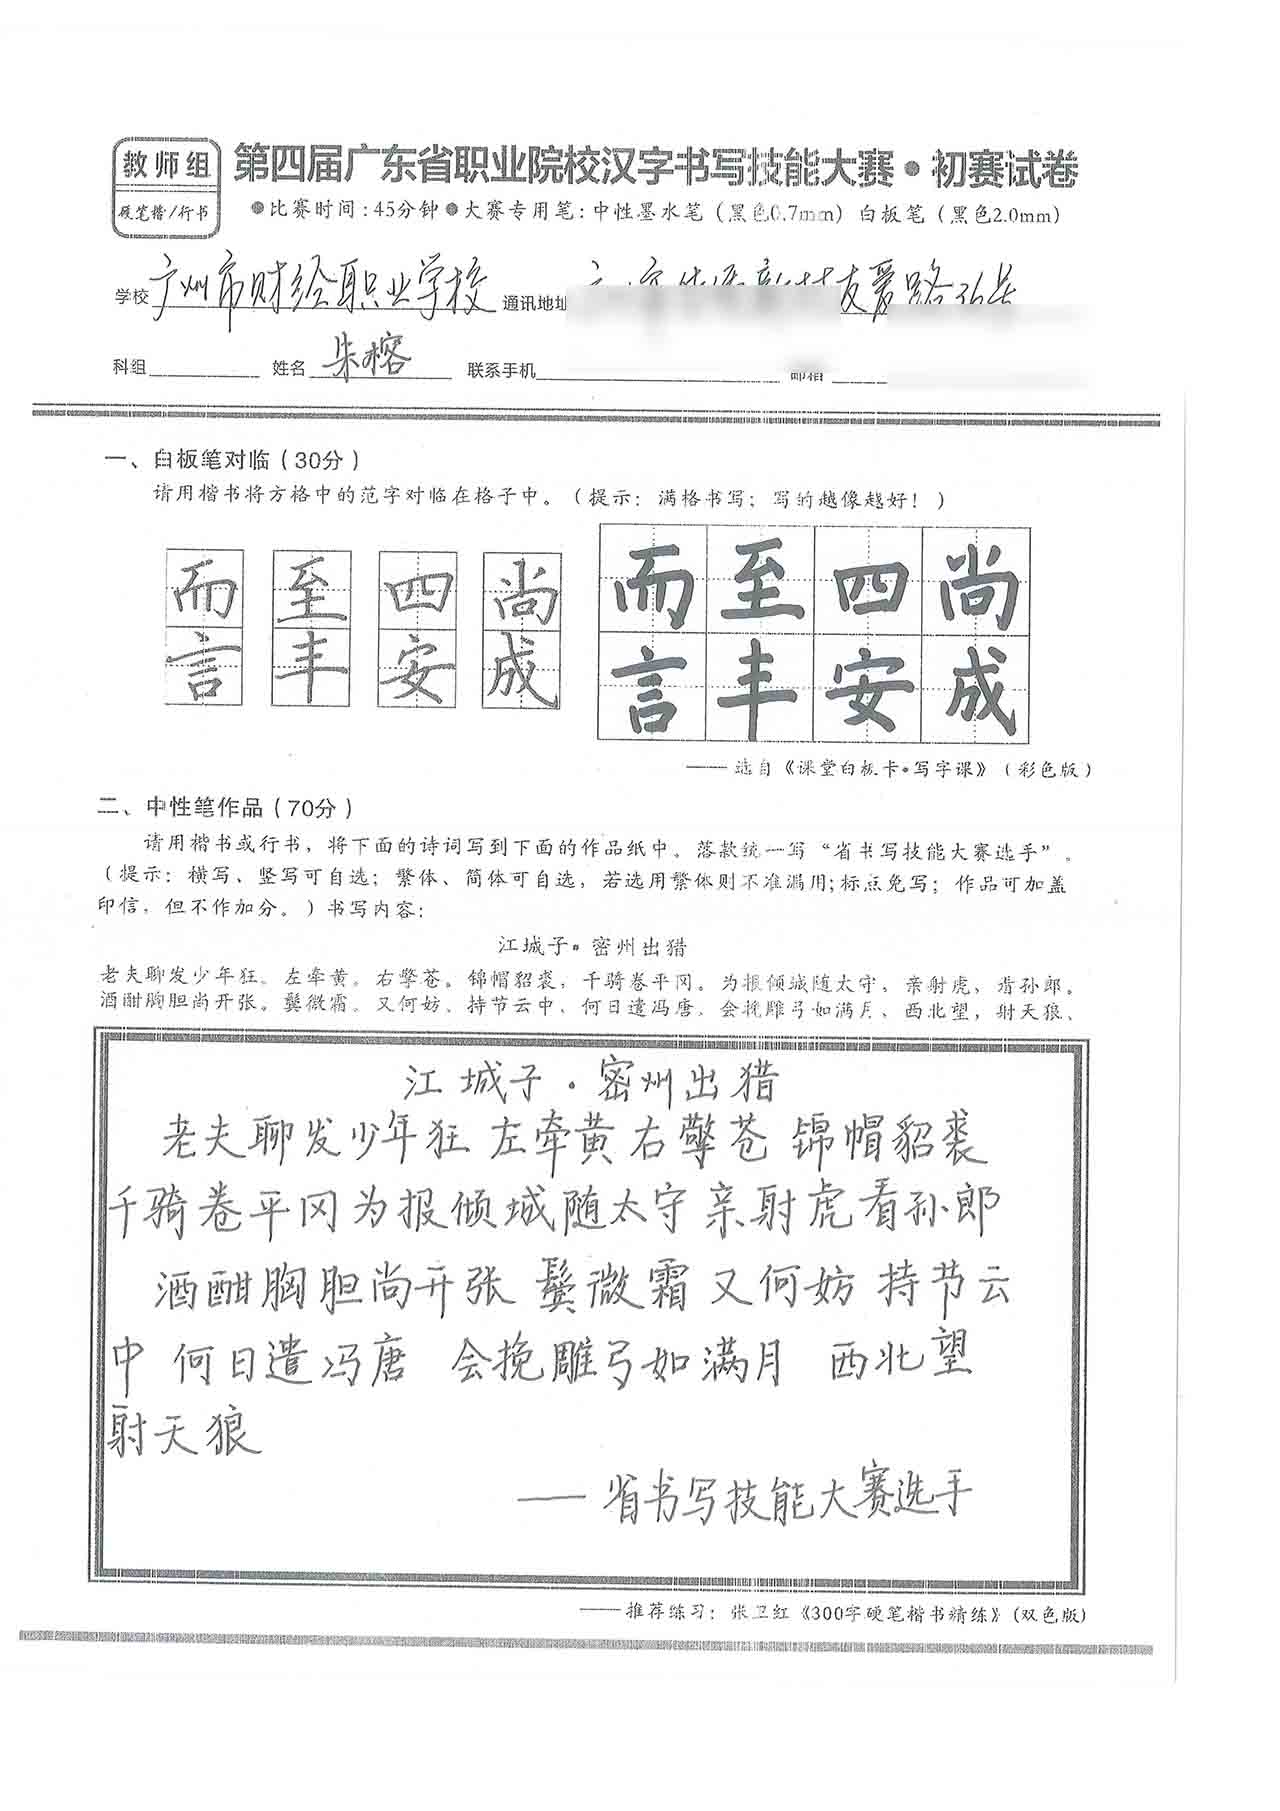 教师组
硬笔楷/行书
第四届广东省职业院校汉字书写技能大赛·初赛试卷
●比赛时间:45分钟●大赛专用笔:中性墨水笔(黑色0.7mm) 白板笔(黑色2.0mm)
学校 广州市财经职业学校 通讯地址 友爱路36号
科组 姓名 朱榕 联系手机 邮箱
一、白板笔对临(30分)
请用楷书将方格中的范字对临在格子中。(提示:满格书写;写的越像越好!)
而 至 四 尚 而 至 四 尚
言 丰 安 成 言 丰 安 成
——选自《课堂白板卡·写字课》(彩色版)
二、中性笔作品(70分)
请用楷书或行书,将下面的诗词写到下面的作品纸中。落款统一写“省书写技能大赛选手”。
(提示:横写、竖写可自选;繁体、简体可自选,若选用繁体则不准漏用;标点免写;作品可加盖
印信,但不作加分。)书写内容:
江城子·密州出猎
老夫聊发少年狂。左牵黄。右擎苍。锦帽貂裘,千骑卷平冈。为报倾城随太守,亲射虎,看孙郎。
酒酣胸胆尚开张。鬓微霜。又何妨。持节云中,何日遣冯唐。会挽雕弓如满月、西北望,射天狼、
江城子·密州出猎
老夫聊发少年狂 左牵黄右擎苍 锦帽貂裘
千骑卷平冈为报倾城随太守亲射虎看孙郎
酒酣胸胆尚开张 鬓微霜 又何妨 持节云
中 何日遣冯唐 会挽雕弓如满月 西北望
射天狼
——省书写技能大赛选手
——推荐练习:张卫红《300字硬笔楷书精练》(双色版)